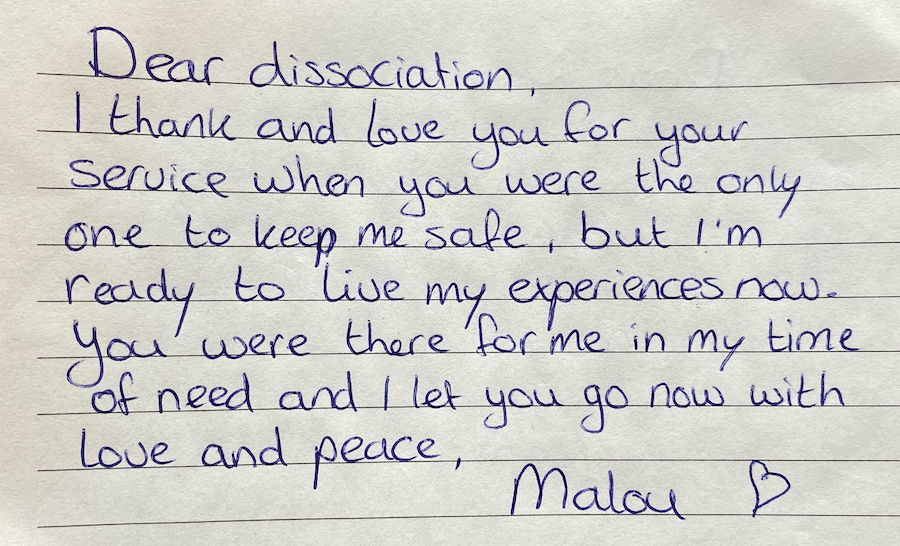 Dear dissociation,
I thank and love you for your
service when you were the only
one to keep me safe, but I'm
ready to live my experiences now.
You were there for me in my time
of need and I let you go now with
love and peace,
Malou